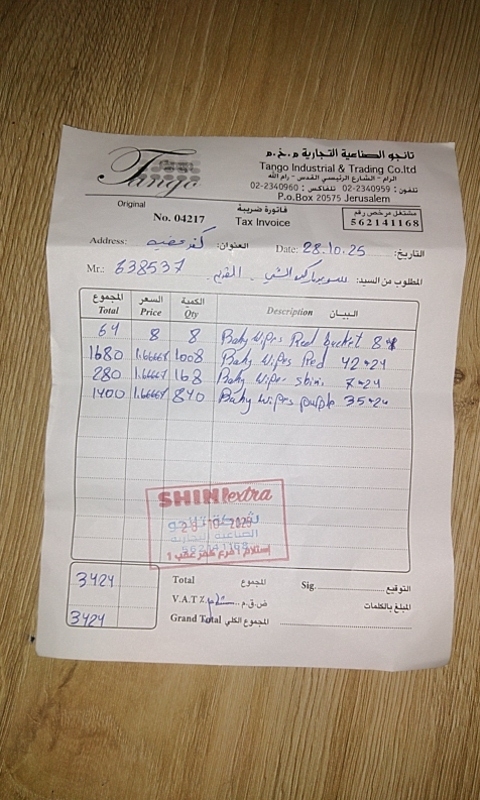 Tango
تانجو الصناعية التجارية م.خ.م
Tango Industrial & Trading Co.ltd
الرام - الشارع الرئيسي القدس - رام الله
تلفون : 02-2340959 تلفاكس : 02-2340960
P.o.Box 20575 Jerusalem
Original
No. 04217
فاتورة ضريبة
Tax Invoice
مشتغل مرخص رقم
562141168
Address: كفر عقب العنوان:
Date: 28.10.25 التاريخ:
Mr.: 638537 المطلوب من السيد:
المجموع السعر الكمية البيان
Total Price Qty Description
64 8 8 Baby Wipes Red bucket
1680 1.66667 1008 Baby Wipes Red 42*24
280 1.66667 168 Baby Wipes 7*24
1400 1.66667 840 Baby Wipes purple 35*24
SHINI extra
28 10 2025
الصناعية التجارية
562141168
إستلام فرع كفر عقب 1
3424 Total المجموع Sig. التوقيع
V.A.T ٪ ض.ق.م المبلغ بالكلمات
3424 Grand Total المجموع الكلي